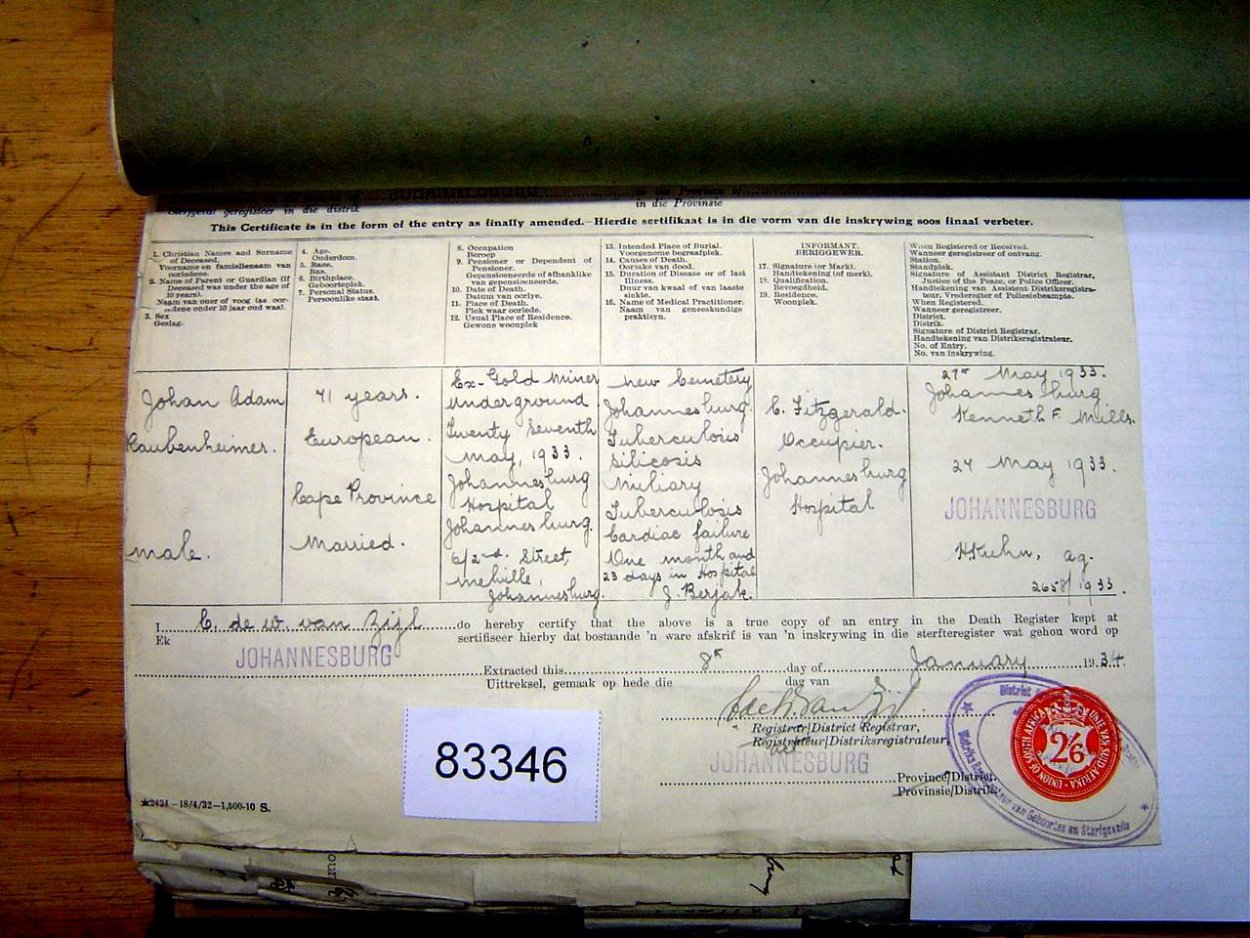 JOHANNESBURG
in the Province of
Sterfgeval geregistreer in die distrik
in die Provinsie
This Certificate is in the form of the entry as finally amended.—Hierdie sertifikaat is in die vorm van die inskrywing soos finaal verbeter.
1. Christian Names and Surname
of Deceased.
Voorname en familienaam van
oorledene.
2. Name of Parent or Guardian (if
Deceased was under the age of
10 years).
Naam van ouer of voog (as oor-
ledene onder 10 jaar oud was).
3. Sex
Geslag.
4. Age.
Ouderdom.
5. Race.
Ras.
6. Birthplace.
Geboorteplek.
7. Personal Status.
Persoonlike staat.
8. Occupation
Beroep
9. Pensioner or Dependent of
Pensioner.
Gepensioeneerde of afhanklike
van gepensioeneerde.
10. Date of Death.
Datum van oorlye.
11. Place of Death.
Plek waar oorlede.
12. Usual Place of Residence.
Gewone woonplek
13. Intended Place of Burial.
Voorgenome begraafplek.
14. Causes of Death.
Oorsake van dood.
15. Duration of Disease or of last
Illness.
Duur van kwaal of van laaste
siekte.
16. Name of Medical Practitioner.
Naam van geneeskundige
praktisyn.
INFORMANT.
BERIGGEWER.
17. Signature (or Mark).
Handtekening (of merk).
18. Qualification.
Bevoegdheid.
19. Residence.
Woonplek.
When Registered or Received.
Wanneer geregistreer of ontvang.
Station.
Standplek.
Signature of Assistant District Registrar,
Justice of the Peace, or Police Officer.
Handtekening van Assistent Distriksregistra-
teur, Vrederegter of Polisiebeampte.
When Registered.
Wanneer geregistreer.
District.
Distrik.
Signature of District Registrar.
Handtekening van Distriksregistrateur.
No. of Entry.
No. van inskrywing.
Johan Adam
Raubenheimer.
male.
71 years.
European.
Cape Province
Married.
Ex-Gold Miner
underground
Twenty Seventh
May, 1933.
Johannesburg
Hospital
Johannesburg.
6/2nd. Street,
Melville,
Johannesburg.
New Cemetery
Johannesburg.
Tuberculosis
Silicosis
Miliary
Tuberculosis
Cardiac failure
One month and
23 days in Hospital
J. Berjak.
C. Fitzgerald.
Occupier.
Johannesburg
Hospital
27th May 1933.
Johannesburg
Kenneth F. Mills.
27 May 1933.
JOHANNESBURG
H Kuhn, ag.
2658/1933.
I C. de W. van Zijl do hereby certify that the above is a true copy of an entry in the Death Register kept at
Ek sertifiseer hierby dat bostaande 'n ware afskrif is van 'n inskrywing in die sterfteregister wat gehou word op
JOHANNESBURG
Extracted this 8th day of January 1934.
Uittreksel, gemaak op hede die dag van
C de W van Zijl
Registrar/District Registrar,
Registrateur/Distriksregistrateur,
JOHANNESBURG
Province/District.
Provinsie/Distrik.
83346
★2434—18/4/32—1,500-10 S.
UNION OF SOUTH AFRICA · UNIE VAN SUID AFRIKA
2/6
District
Distriks Registrateur van Geboortes en Sterfgevalle